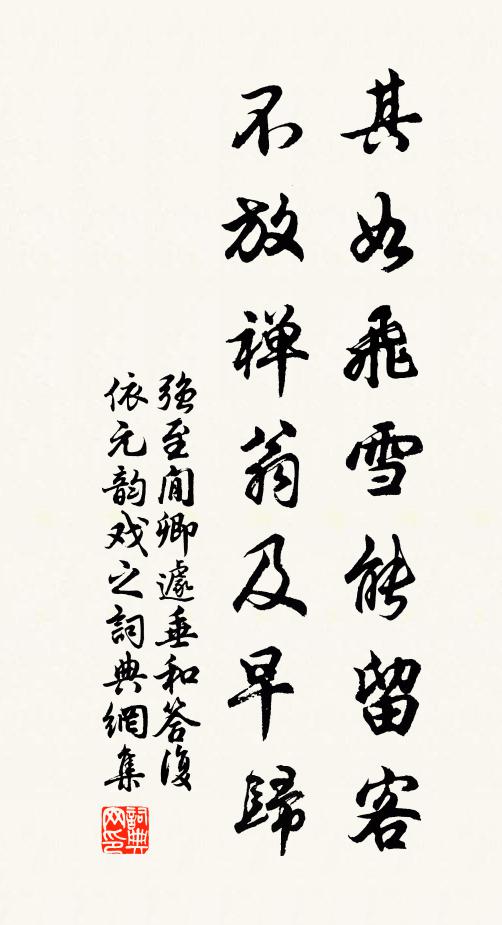 其如飛雪能留客
不放禅翁及早歸
强至闻卿遽垂和答復
依元韵戏之詞典網集
詞典网印